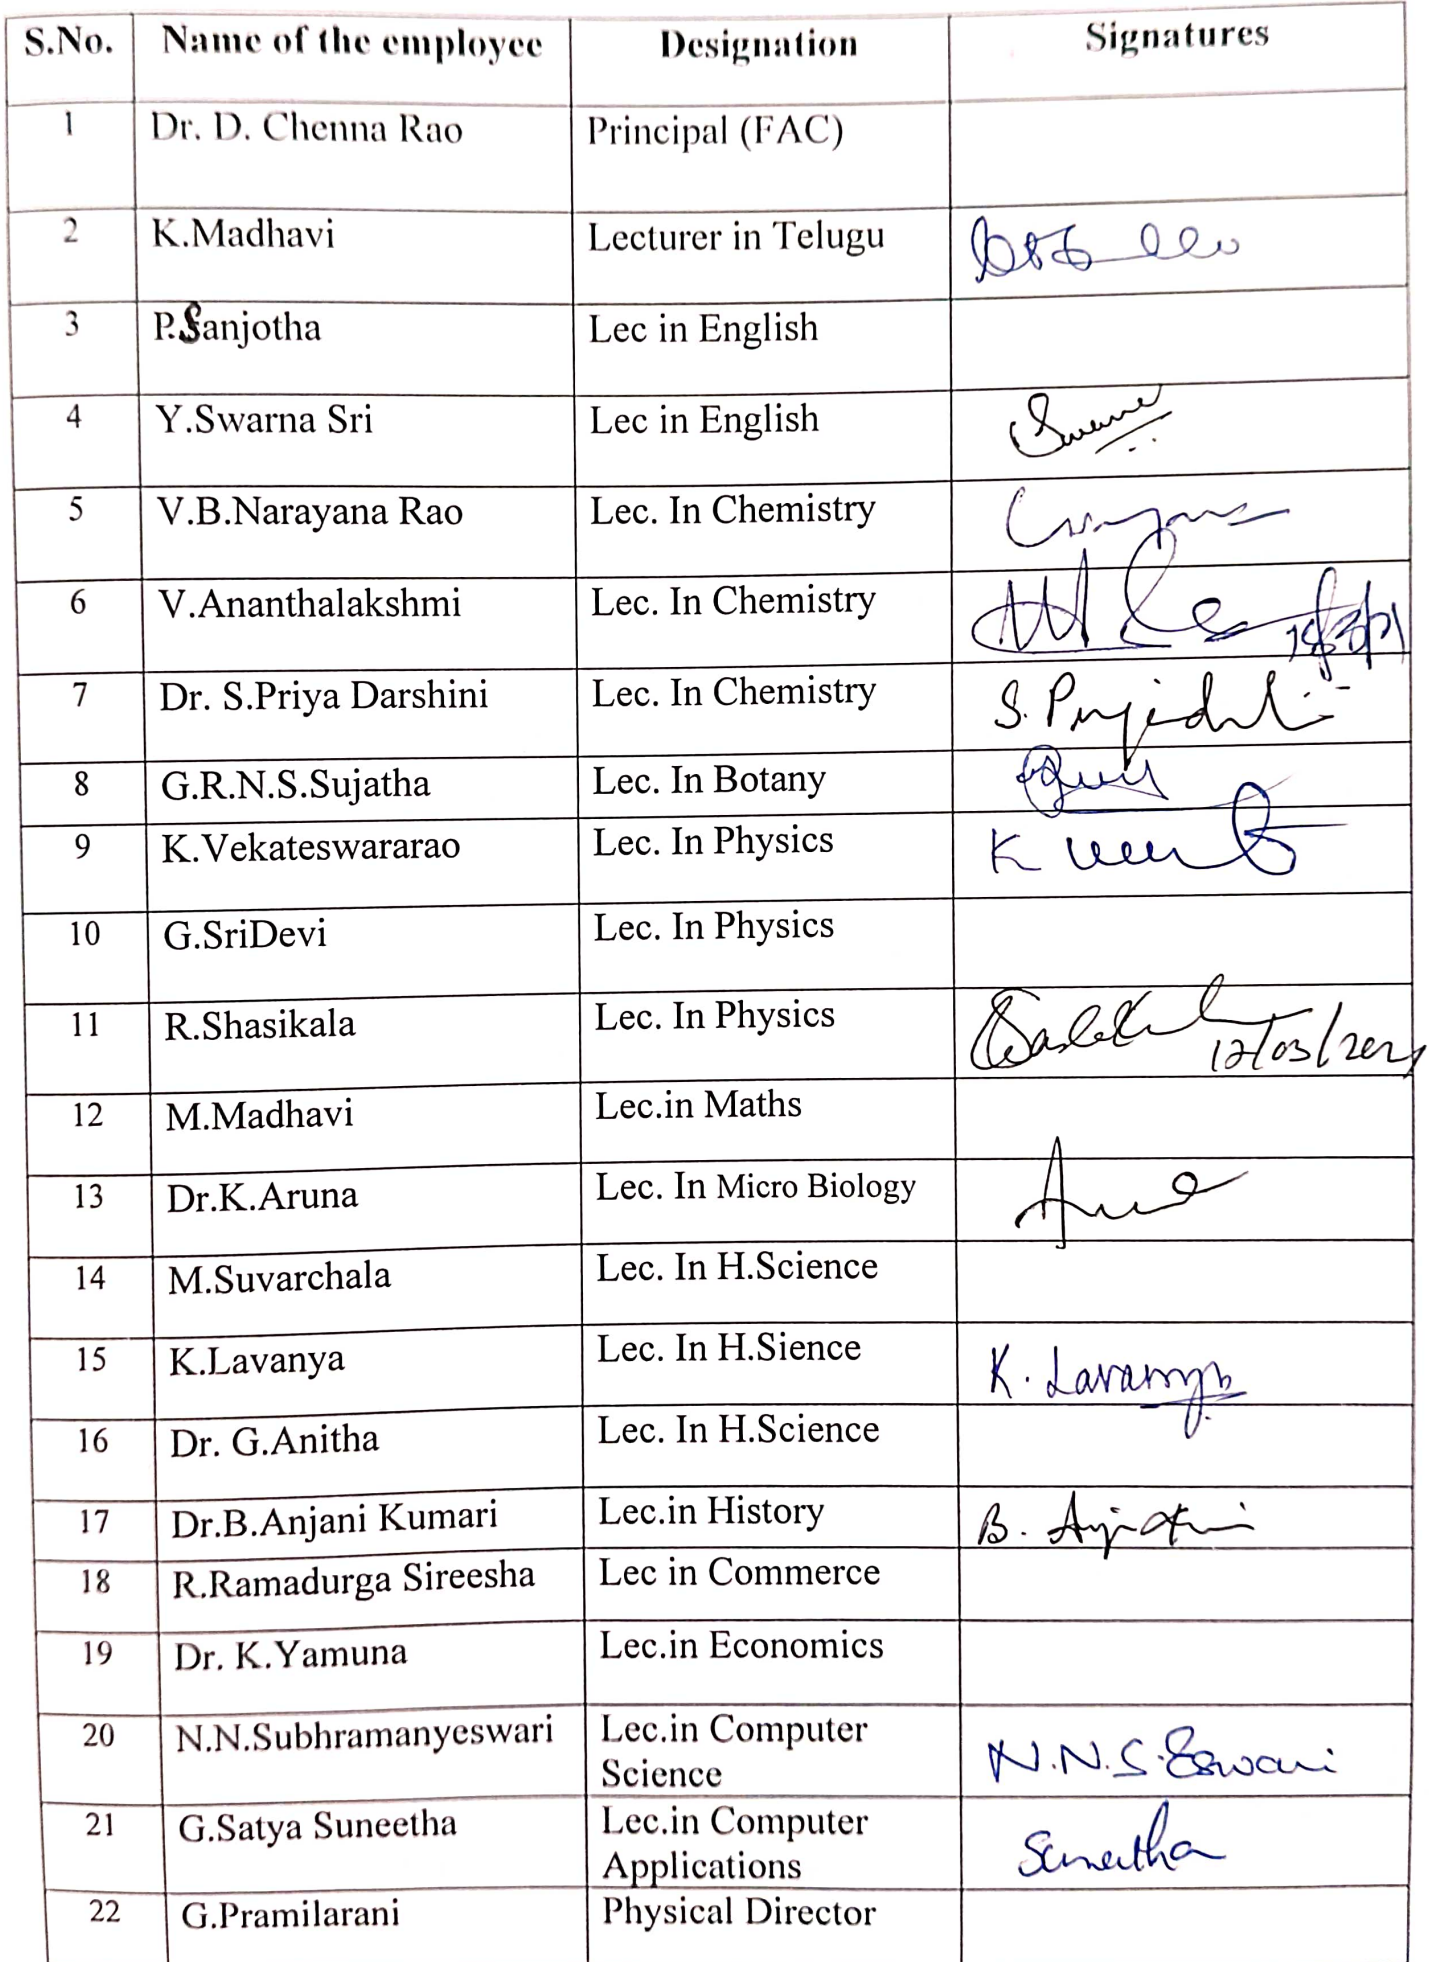 S.No. Name of the employee Designation Signatures
1 Dr. D. Chenna Rao Principal (FAC)
2 K.Madhavi Lecturer in Telugu
3 P.Sanjotha Lec in English
4 Y.Swarna Sri Lec in English
5 V.B.Narayana Rao Lec. In Chemistry
6 V.Ananthalakshmi Lec. In Chemistry
7 Dr. S.Priya Darshini Lec. In Chemistry S.
8 G.R.N.S.Sujatha Lec. In Botany
9 K.Vekateswararao Lec. In Physics K
10 G.SriDevi Lec. In Physics
11 R.Shasikala Lec. In Physics 12/03/2021
12 M.Madhavi Lec.in Maths
13 Dr.K.Aruna Lec. In Micro Biology
14 M.Suvarchala Lec. In H.Science
15 K.Lavanya Lec. In H.Sience K. Lavanya
16 Dr. G.Anitha Lec. In H.Science
17 Dr.B.Anjani Kumari Lec.in History B.
18 R.Ramadurga Sireesha Lec in Commerce
19 Dr. K.Yamuna Lec.in Economics
20 N.N.Subhramanyeswari Lec.in Computer N.N.S.Eswari
Science
21 G.Satya Suneetha Lec.in Computer Suneetha
Applications
22 G.Pramilarani Physical Director